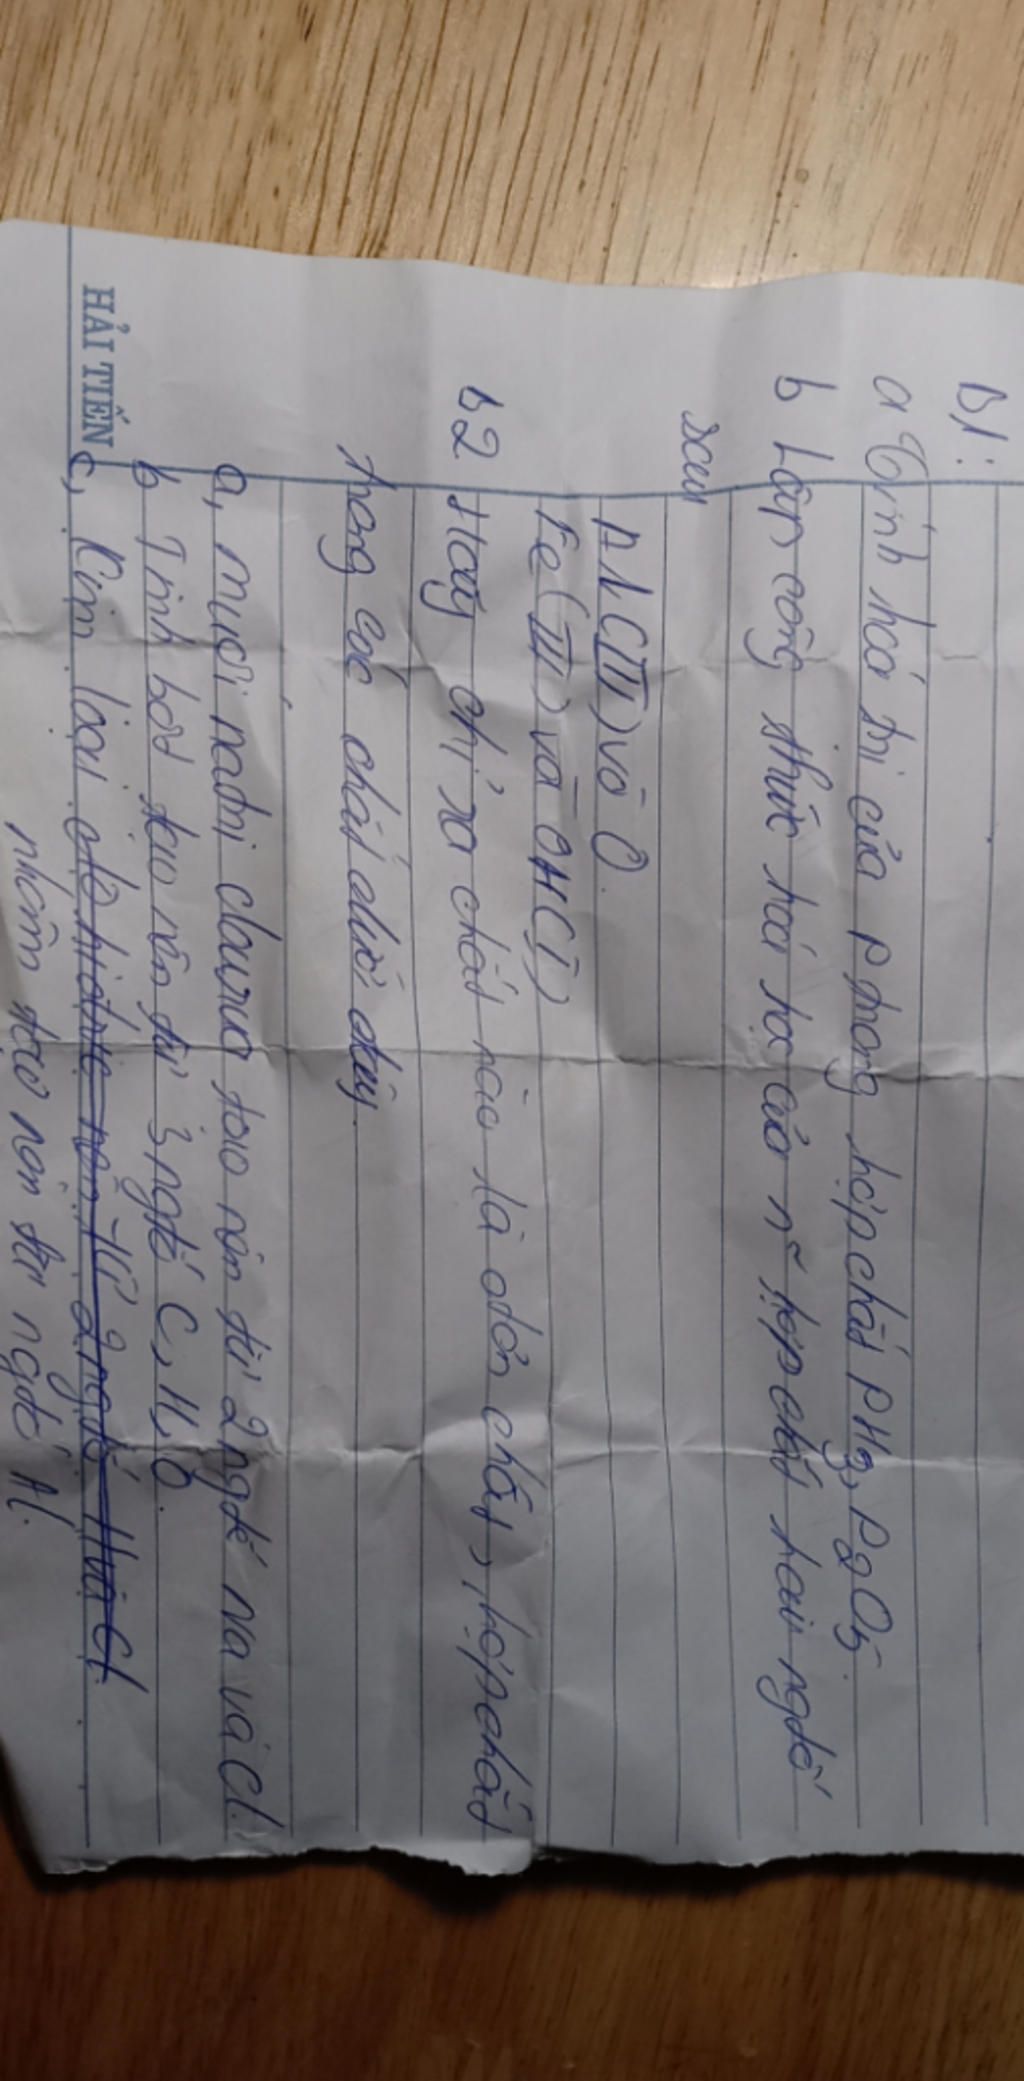 B1:
a Tính hoá trị của P trong hợp chất PH3, P2O5.
b Lập công thức hoá học của n~ hợp chất hai ngtố
sau
Al(III) và O.
Fe(III) và OH(I)
b2 Hãy chỉ ra chất nào là đơn chất, hợp chất
trong các chất dưới đây.
a, muối natri clorua tạo nên từ 2 ngtố Na và Cl.
b Tinh bột tạo nên từ 3 ngtố C, H, O.
c, Kim loại
nhôm tạo nên từ ngtố Al.
HẢI TIẾN